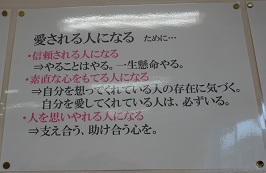 愛される人になる ために…
・信頼される人になる
⇒やることはやる。一生懸命やる。
・素直な心をもてる人になる
⇒自分を想ってくれている人の存在に気づく。
自分を愛してくれている人は、必ずいる。
・人を思いやれる人になる
⇒支え合う、助け合う心を。